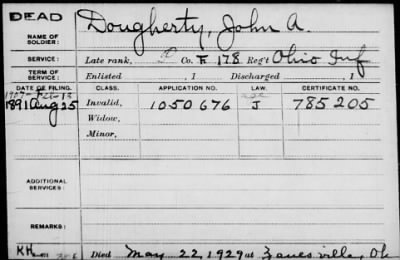 DEAD
NAME OF SOLDIER: Dougherty, John A.
SERVICE: Late rank, Co. F 178 Reg't Ohio Inf
TERM OF SERVICE: Enlisted , 1 Discharged , 1
DATE OF FILING. CLASS. APPLICATION NO. LAW. CERTIFICATE NO.
1891 Aug 25 Invalid, 1050676 J 785205
Widow,
Minor,
ADDITIONAL SERVICES:
REMARKS:
Died May 22, 1929 at Zanesville, Oh